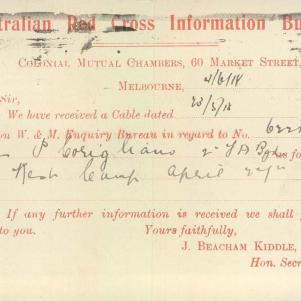 tralian Red Cross Information Bu
COLONIAL MUTUAL CHAMBERS, 60 MARKET STREET,
MELBOURNE, 4/6/18
Sir,
We have received a Cable dated 23/5/18
on W. & M. Enquiry Bureau in regard to No. 622
P. Corigliano as fo
Rest Camp April 27th
If any further information is received we shall
to you. Yours faithfully,
J. BEACHAM KIDDLE,
Hon. Secre